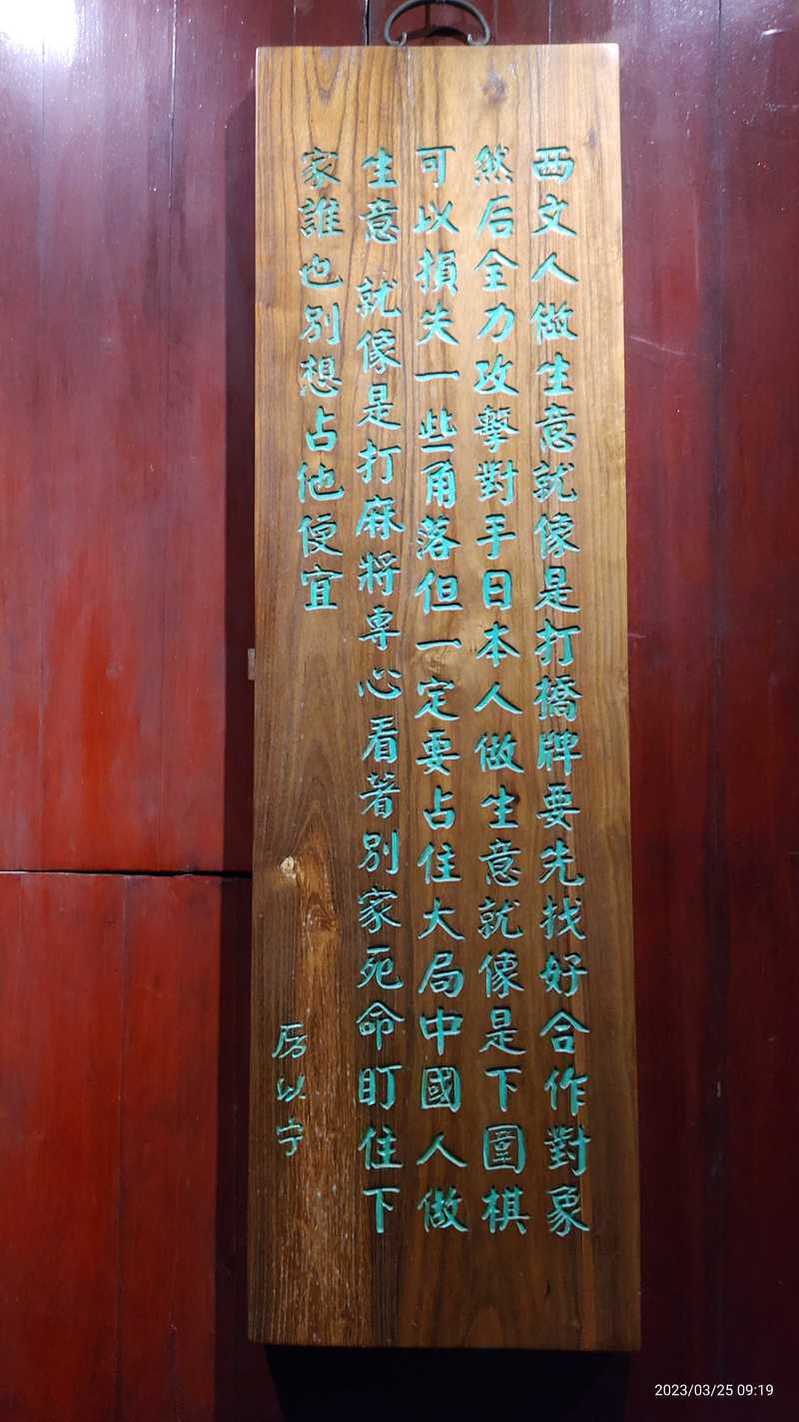 西文人做生意就像是打橋牌要先找好合作對象
然后全力攻擊對手日本人做生意就像是下圍棋
可以損失一些角落但一定要占住大局中國人做
生意 就像是打麻將専心看著別家死命盯住下
家誰也別想占他便宜
厉以宁
2023/03/25 09:19